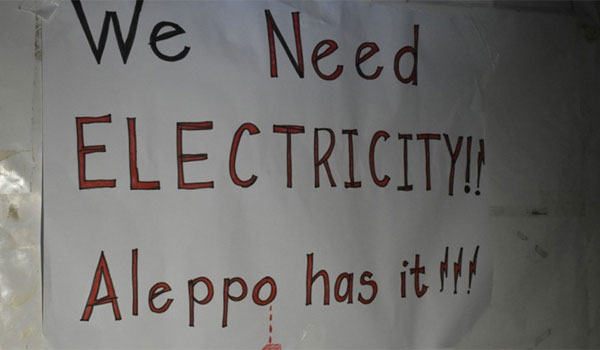 We Need
ELECTRICITY!!
Aleppo has it!!!